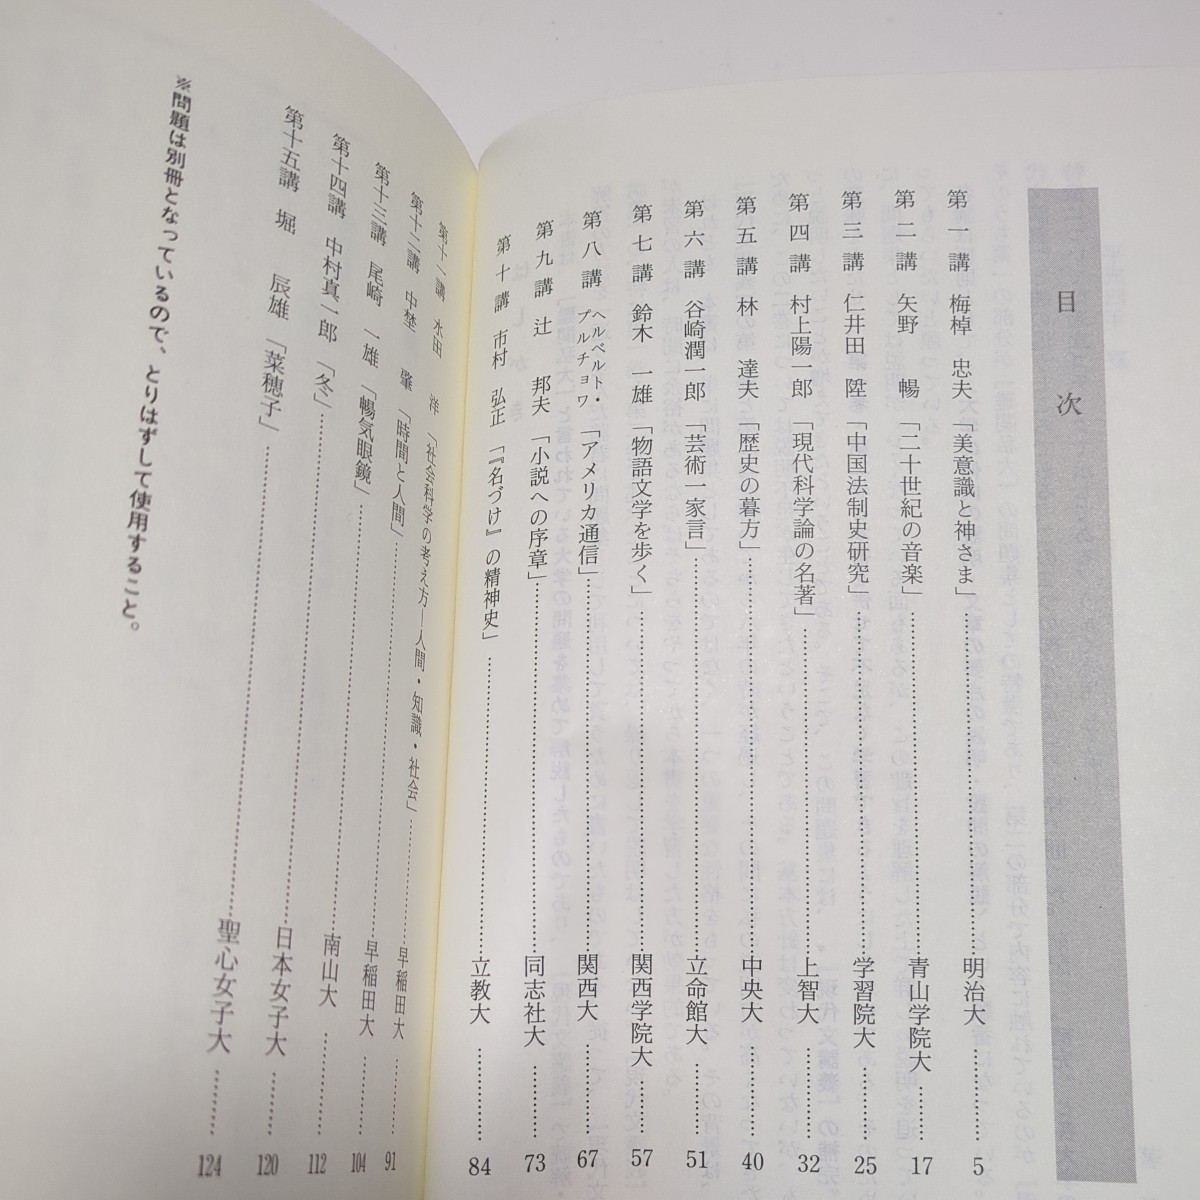 目次
第一講　梅棹　忠夫「美意識と神さま」……明治大……5
第二講　矢野　暢「二十世紀の音楽」……青山学院大……17
第三講　仁井田　陞「中国法制史研究」……学習院大……25
第四講　村上陽一郎「現代科学論の名著」……上智大……32
第五講　林　達夫「歴史の暮方」……中央大……40
第六講　谷崎潤一郎「芸術一家言」……立命館大……51
第七講　鈴木　一雄「物語文学を歩く」……関西学院大……57
第八講　ヘルベルト・プルチョワ「アメリカ通信」……関西大……67
第九講　辻　邦夫「小説への序章」……同志社大……73
第十講　市村　弘正「『名づけ』の精神史」……立教大……84
第十一講　水田　洋「社会科学の考え方―人間・知識・社会」……早稲田大……91
第十二講　中埜　肇「時間と人間」……早稲田大……104
第十三講　尾崎　一雄「暢気眼鏡」……南山大……112
第十四講　中村真一郎「冬」……日本女子大……120
第十五講　堀　辰雄「菜穂子」……聖心女子大……124
※問題は別冊となっているので、とりはずして使用すること。